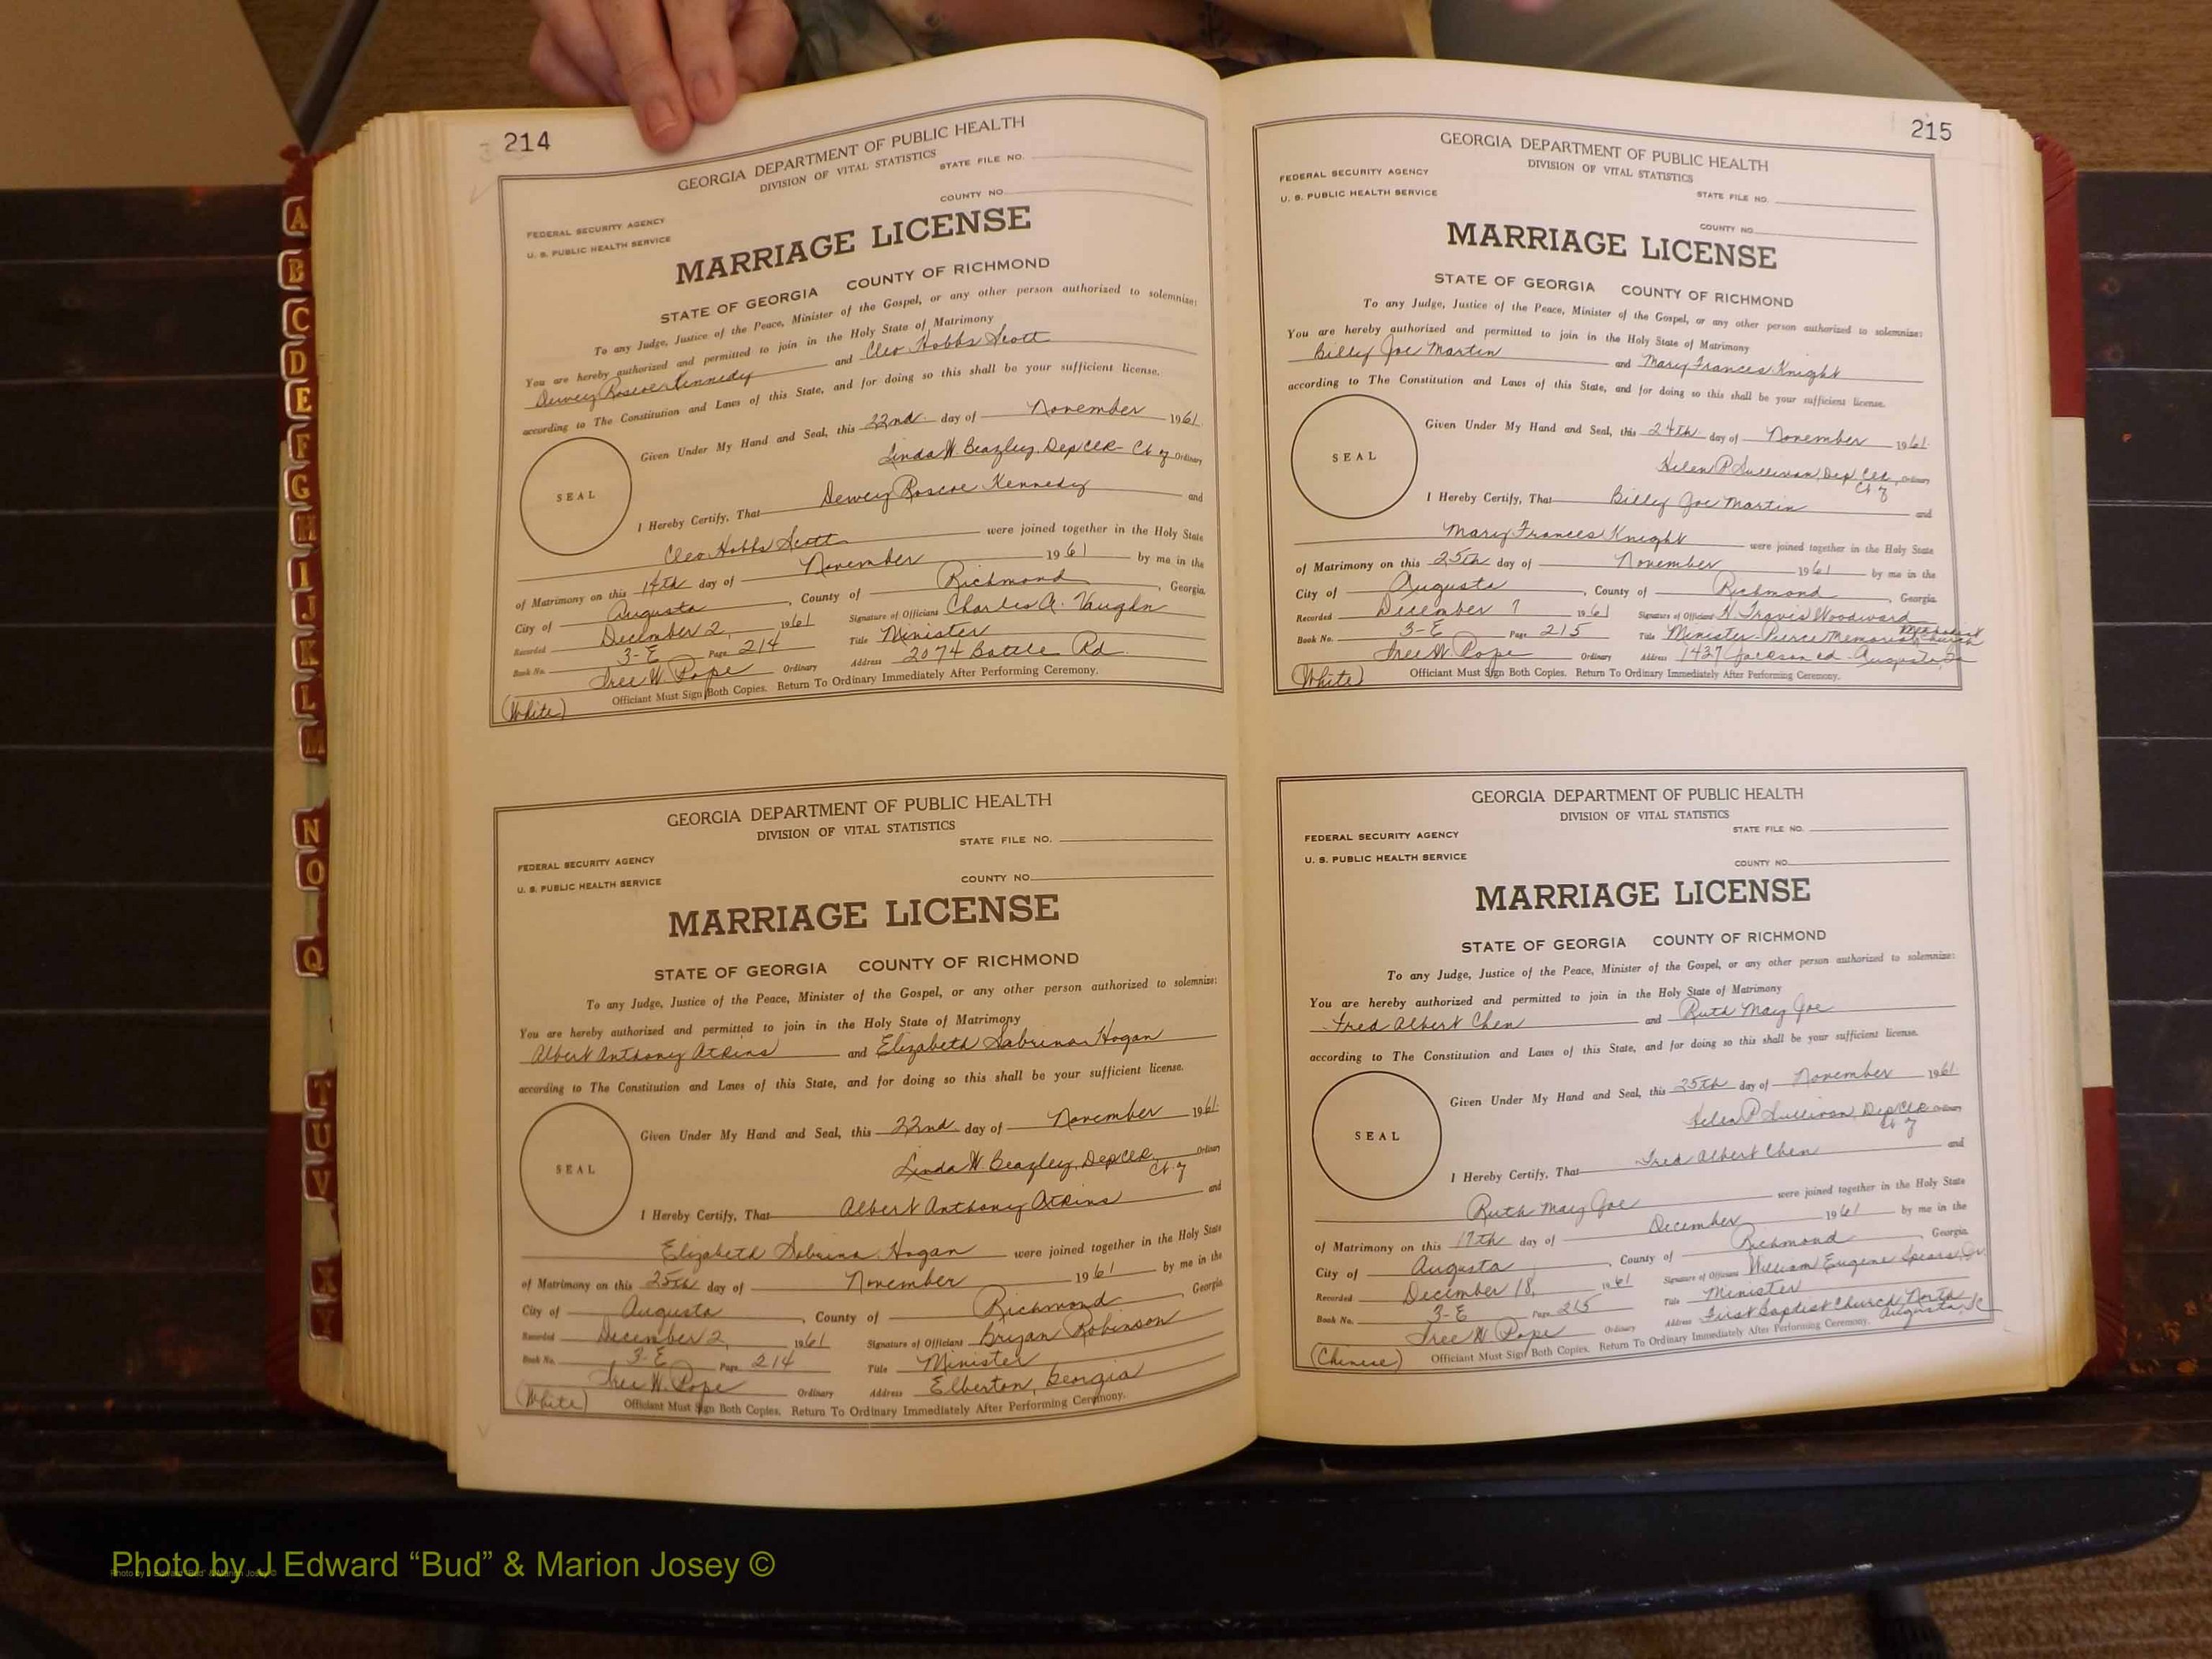 214
GEORGIA DEPARTMENT OF PUBLIC HEALTH
DIVISION OF VITAL STATISTICS
STATE FILE NO.
COUNTY NO.
FEDERAL SECURITY AGENCY
U. S. PUBLIC HEALTH SERVICE
MARRIAGE LICENSE
STATE OF GEORGIA COUNTY OF RICHMOND
To any Judge, Justice of the Peace, Minister of the Gospel, or any other person authorized to solemnize:
You are hereby authorized and permitted to join in the Holy State of Matrimony
Dewey Roscoe Kennedy and Cleo Hobbs Scott
according to The Constitution and Laws of this State, and for doing so this shall be your sufficient license.
Given Under My Hand and Seal, this 22nd day of November 1961
Linda W. Beazley, Dep Clk Ct of Ordinary
SEAL
I Hereby Certify, That Dewey Roscoe Kennedy and
Cleo Hobbs Scott were joined together in the Holy State
of Matrimony on this 14th day of November 1961 by me in the
City of Augusta, County of Richmond, Georgia.
Recorded December 2, 1961 Signature of Officiant Charles A. Vaughn
Book No. 3-E Page 214 Title Minister
Tree W. Pope Ordinary Address 2074 Battle Rd.
(White) Officiant Must Sign Both Copies. Return To Ordinary Immediately After Performing Ceremony.
GEORGIA DEPARTMENT OF PUBLIC HEALTH
DIVISION OF VITAL STATISTICS
STATE FILE NO.
FEDERAL SECURITY AGENCY
U. S. PUBLIC HEALTH SERVICE
COUNTY NO.
MARRIAGE LICENSE
STATE OF GEORGIA COUNTY OF RICHMOND
To any Judge, Justice of the Peace, Minister of the Gospel, or any other person authorized to solemnize:
You are hereby authorized and permitted to join in the Holy State of Matrimony
Albert Anthony Atkins and Elizabeth Sabrina Hogan
according to The Constitution and Laws of this State, and for doing so this shall be your sufficient license.
Given Under My Hand and Seal, this 22nd day of November 1961
Linda W. Beazley, Dep Clk Ct of Ordinary
SEAL
I Hereby Certify, That Albert Anthony Atkins and
Elizabeth Sabrina Hogan were joined together in the Holy State
of Matrimony on this 25th day of November 1961 by me in the
City of Augusta, County of Richmond Georgia
Recorded December 2, 1961 Signature of Officiant Bryan Robinson
Book No. 3-E Page 214 Title Minister
Tree W. Pope Ordinary Address Elberton, Georgia
(White) Officiant Must Sign Both Copies. Return To Ordinary Immediately After Performing Ceremony.
215
GEORGIA DEPARTMENT OF PUBLIC HEALTH
DIVISION OF VITAL STATISTICS
FEDERAL SECURITY AGENCY
U. S. PUBLIC HEALTH SERVICE
STATE FILE NO.
COUNTY NO.
MARRIAGE LICENSE
STATE OF GEORGIA COUNTY OF RICHMOND
To any Judge, Justice of the Peace, Minister of the Gospel, or any other person authorized to solemnize:
You are hereby authorized and permitted to join in the Holy State of Matrimony
Billy Joe Martin and Mary Frances Knight
according to The Constitution and Laws of this State, and for doing so this shall be your sufficient license.
Given Under My Hand and Seal, this 24th day of November 1961
Helen P. Sullivan, Dep Clk Ct of Ordinary
SEAL
I Hereby Certify, That Billy Joe Martin and
Mary Frances Knight were joined together in the Holy State
of Matrimony on this 25th day of November 1961 by me in the
City of Augusta, County of Richmond, Georgia.
Recorded December 7 1961 Signature of Officiant H. Travis Woodward
Book No. 3-E Page 215 Title Minister-Pierce Memorial Methodist Church
Tree W. Pope Ordinary Address 1437 Jackson Rd. Augusta, Ga
(White) Officiant Must Sign Both Copies. Return To Ordinary Immediately After Performing Ceremony.
GEORGIA DEPARTMENT OF PUBLIC HEALTH
DIVISION OF VITAL STATISTICS
STATE FILE NO.
FEDERAL SECURITY AGENCY
U. S. PUBLIC HEALTH SERVICE
COUNTY NO.
MARRIAGE LICENSE
STATE OF GEORGIA COUNTY OF RICHMOND
To any Judge, Justice of the Peace, Minister of the Gospel, or any other person authorized to solemnize:
You are hereby authorized and permitted to join in the Holy State of Matrimony
Fred Albert Chen and Ruth May Joe
according to The Constitution and Laws of this State, and for doing so this shall be your sufficient license.
Given Under My Hand and Seal, this 25th day of November 1961
Helen P. Sullivan, Dep Clk Ct of Ordinary
SEAL
I Hereby Certify, That Fred Albert Chen and
Ruth May Joe were joined together in the Holy State
of Matrimony on this 17th day of December 1961 by me in the
City of Augusta, County of Richmond Georgia
Recorded December 18, 1961 Signature of Officiant William Eugene Spears Jr.
Book No. 3-E Page 215 Title Minister
Tree W Pope Ordinary Address First Baptist Church North Augusta, SC
(Chinese) Officiant Must Sign Both Copies. Return To Ordinary Immediately After Performing Ceremony.
A
B
C
D
E
F
G
H
I
J
K
L
M
N
O
Q
T
U
V
X
Y
Photo by J Edward “Bud” & Marion Josey ©
Photo by J Edward “Bud” & Marion Josey ©